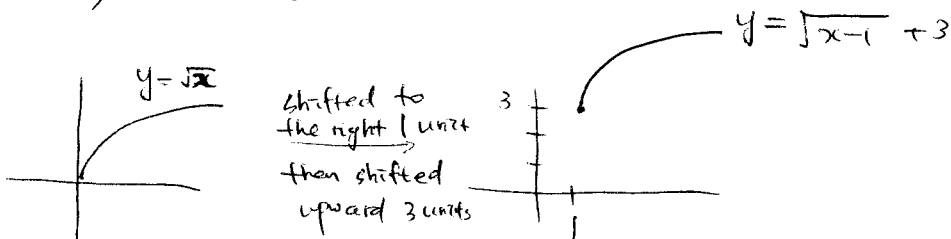 y = √(x-1) + 3
y = √x
shifted to
the right 1 units
then shifted
upward 3 units
3
1